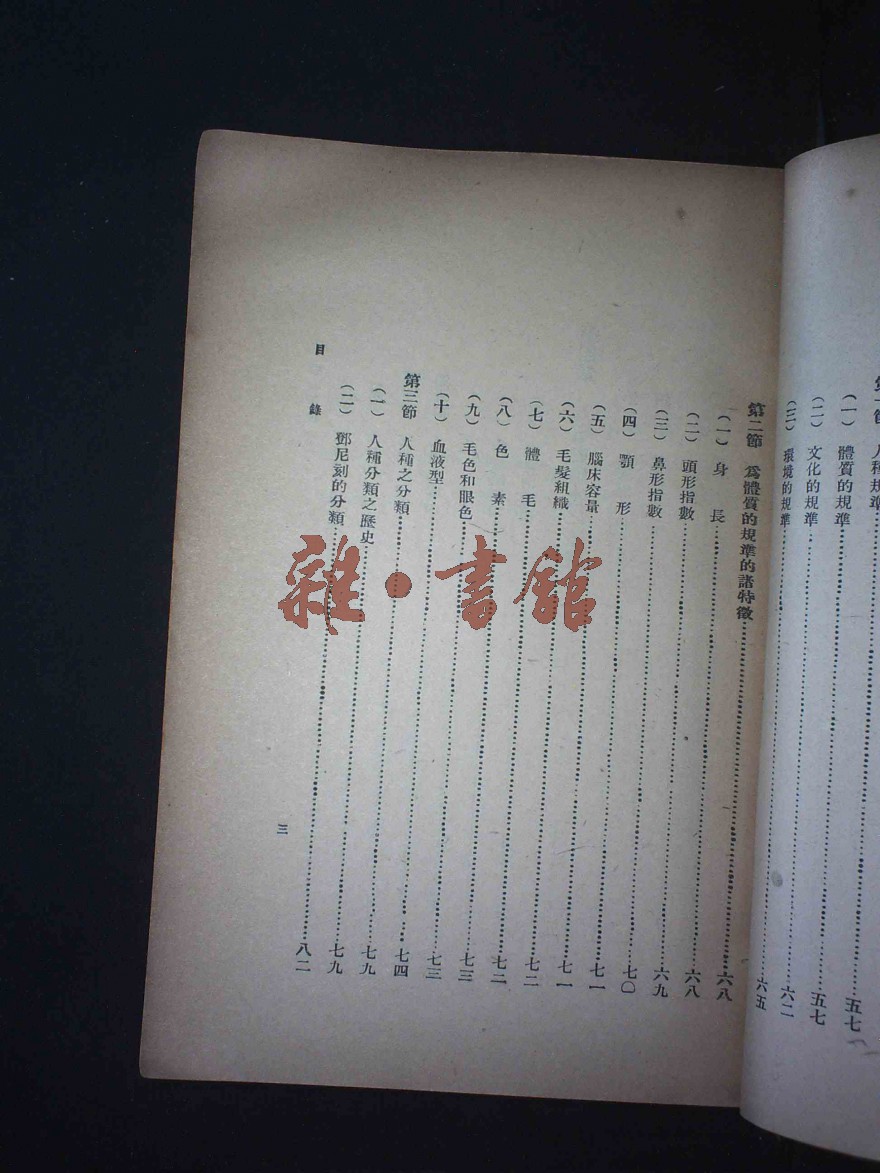 人種規準……五七
(一) 體質的規準……五七
(二) 文化的規準……六二
(三) 環境的規準……六五
第二節 爲體質的規準的諸特徵……六八
(一) 身長……六八
(二) 頭形指數……六九
(三) 鼻形指數……七〇
(四) 顎形……七一
(五) 腦床容量……七一
(六) 毛髮組織……七二
(七) 體毛……七二
(八) 色素……七三
(九) 毛色和眼色……七三
(十) 血液型……七四
第三節 人種之分類……七九
(一) 人種分類之歷史……七九
(二) 鄧尼刻的分類……八二
目錄
三
雜·書館